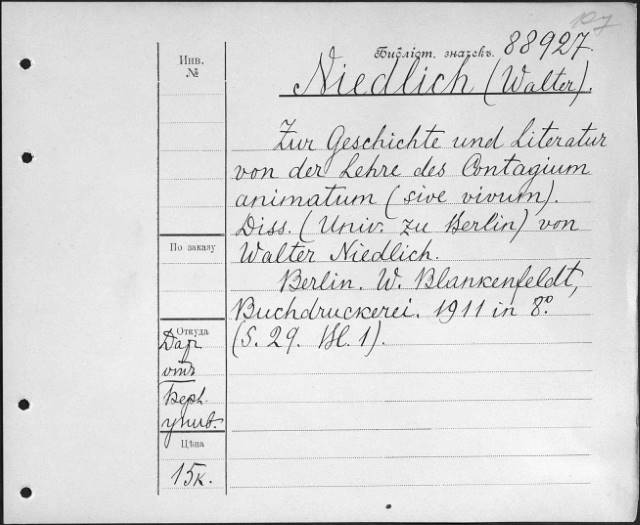 Библіот. значекъ. 88927.
Niedlich (Walter).
Инв.
№
Zur Geschichte und Literatur
von der Lehre des Contagium
animatum (sive vivum).
Diss. (Univ. zu Berlin) von
Walter Niedlich.
Berlin. W. Blankenfeldt,
Buchdruckerei. 1911 in 8º.
(S. 29. Bl. 1).
По заказу
Откуда
Даръ
отъ
Берл.
унив.
Цѣна
15к.